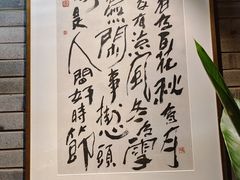 有百花秋有月
有凉風冬有雪
無閑事掛心頭
是人間好時節